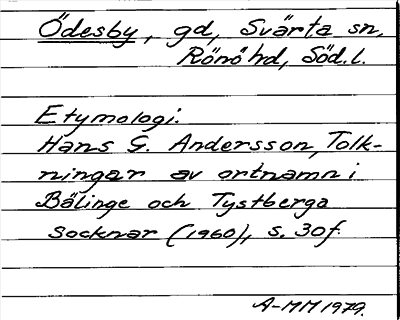 Ödesby, gd, Svärta sn,
Rönö hd, Söd.l.
Etymologi:
Hans G. Andersson, Tolk-
ningar av ortnamn i
Bälinge och Tystberga
socknar (1960), s. 30f.
A-MM 1979.